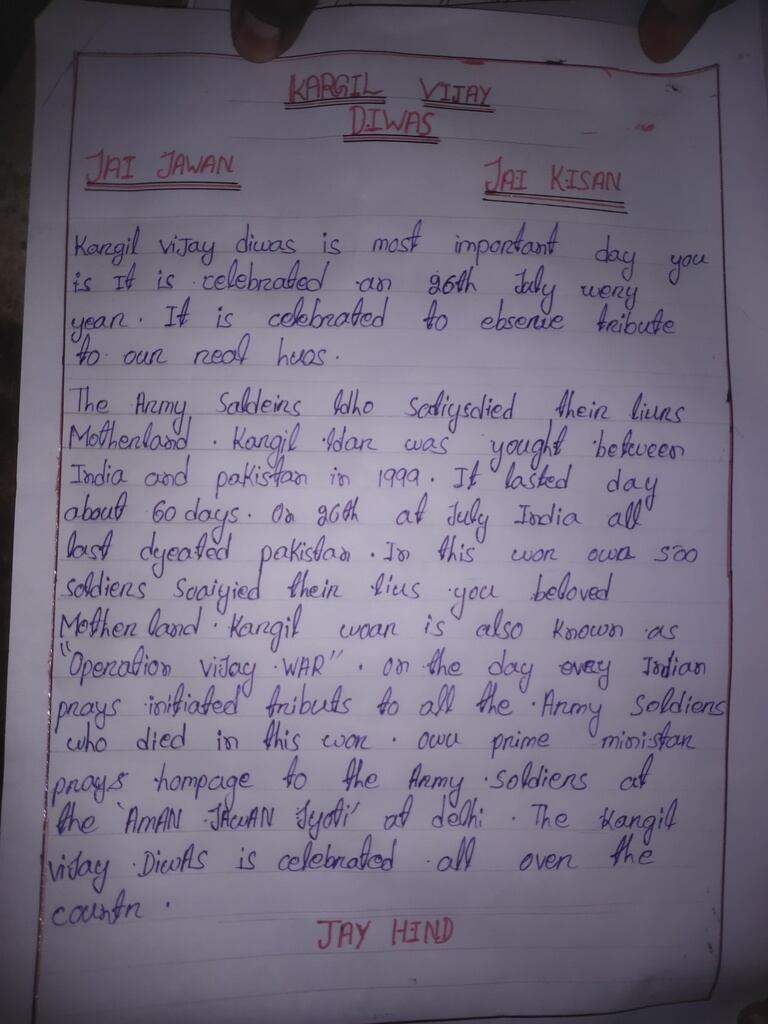 KARGIL VIJAY
DIWAS
JAI JAWAN JAI KISAN
Kargil vijay diwas is most important day you
is It is celebrated an 26th July wery
year. It is celebrated to ebserve tribute
to our real huos.
The Army Saldeins Who their liuns
Motherland. Kargil War was yought between
India and pakistan in 1999. It lasted day
about 60 days. On 26th at July India all
last dyeated pakistan. In this won owa 500
soldiers Soaiyied their lius you beloved
Mother land. Kargil woar is also known as
"Operation vijay WAR". On the day every Indian
prays initiated tributs to all the Army Soldiers
who died in this wor. owu prime ministar
prays hompage to the Army Soldiers at
the 'AMAN JAWAN Jyoti' at delhi. The Kargil
vijay DiwAs is celebrated all over the
countr.
JAY HIND